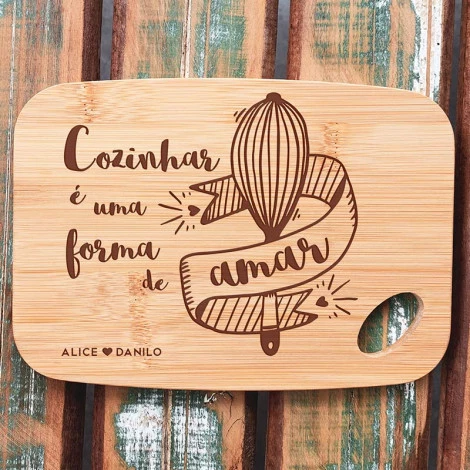 Cozinhar
é uma
forma
de amar
ALICE ♥ DANILO